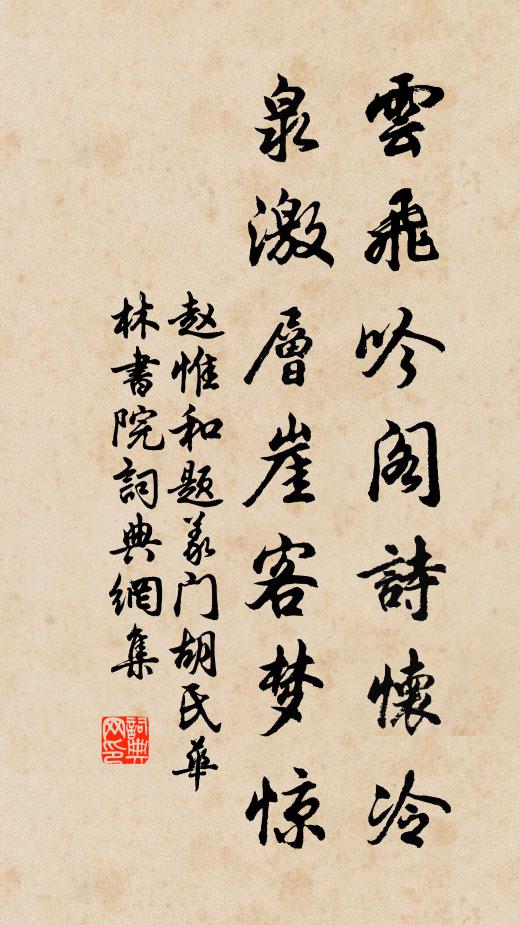 雲飛吟阁詩懷冷
泉激層崖客梦惊
赵惟和题义门胡氏華
林書院詞典網集
詞典
网印